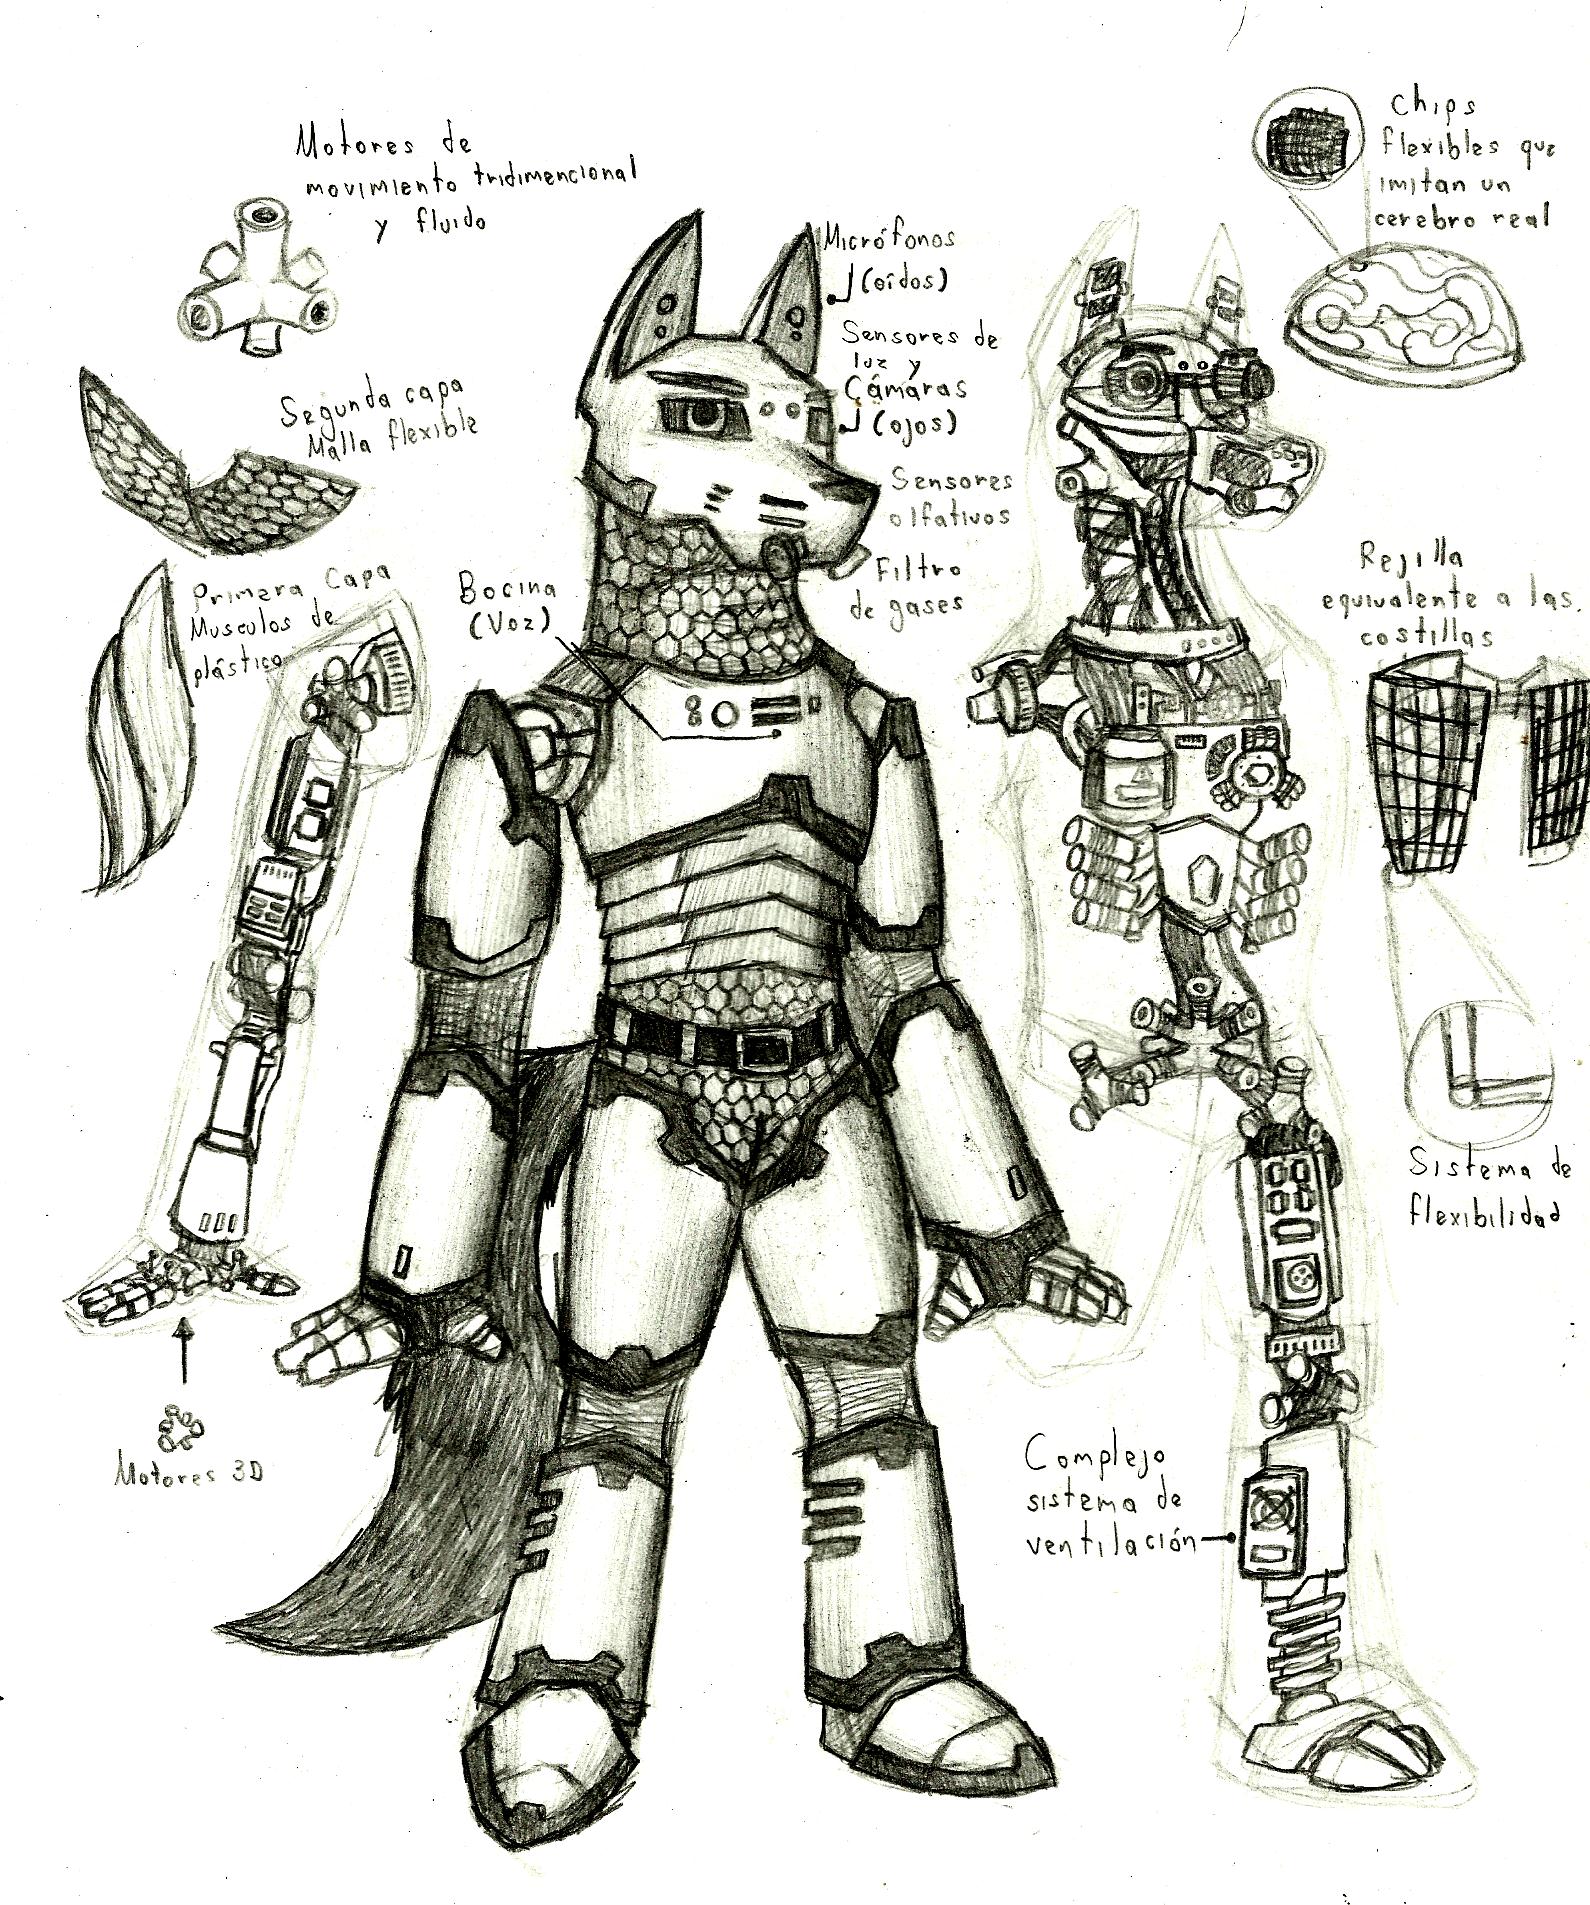 Motores de
movimiento tridimencional
y fluido
Segunda capa
Malla flexible
Primera Capa
Musculos de
plástico
Bocina
(Voz)
Micrófonos
(oídos)
Sensores de
luz y
Cámaras
(ojos)
Sensores
olfativos
Filtro
de gases
Chips
flexibles que
imitan un
cerebro real
Rejilla
equivalente a las
costillas
Sistema de
flexibilidad
Complejo
sistema de
ventilación
Motores 3D